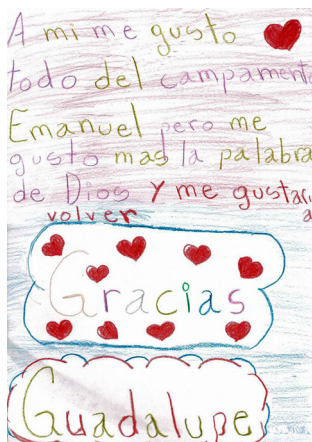 A mi me gusto
todo del campamento
Emanuel pero me
gusto mas la palabra
de Dios y me gustaria
volver
Gracias
Guadalupe